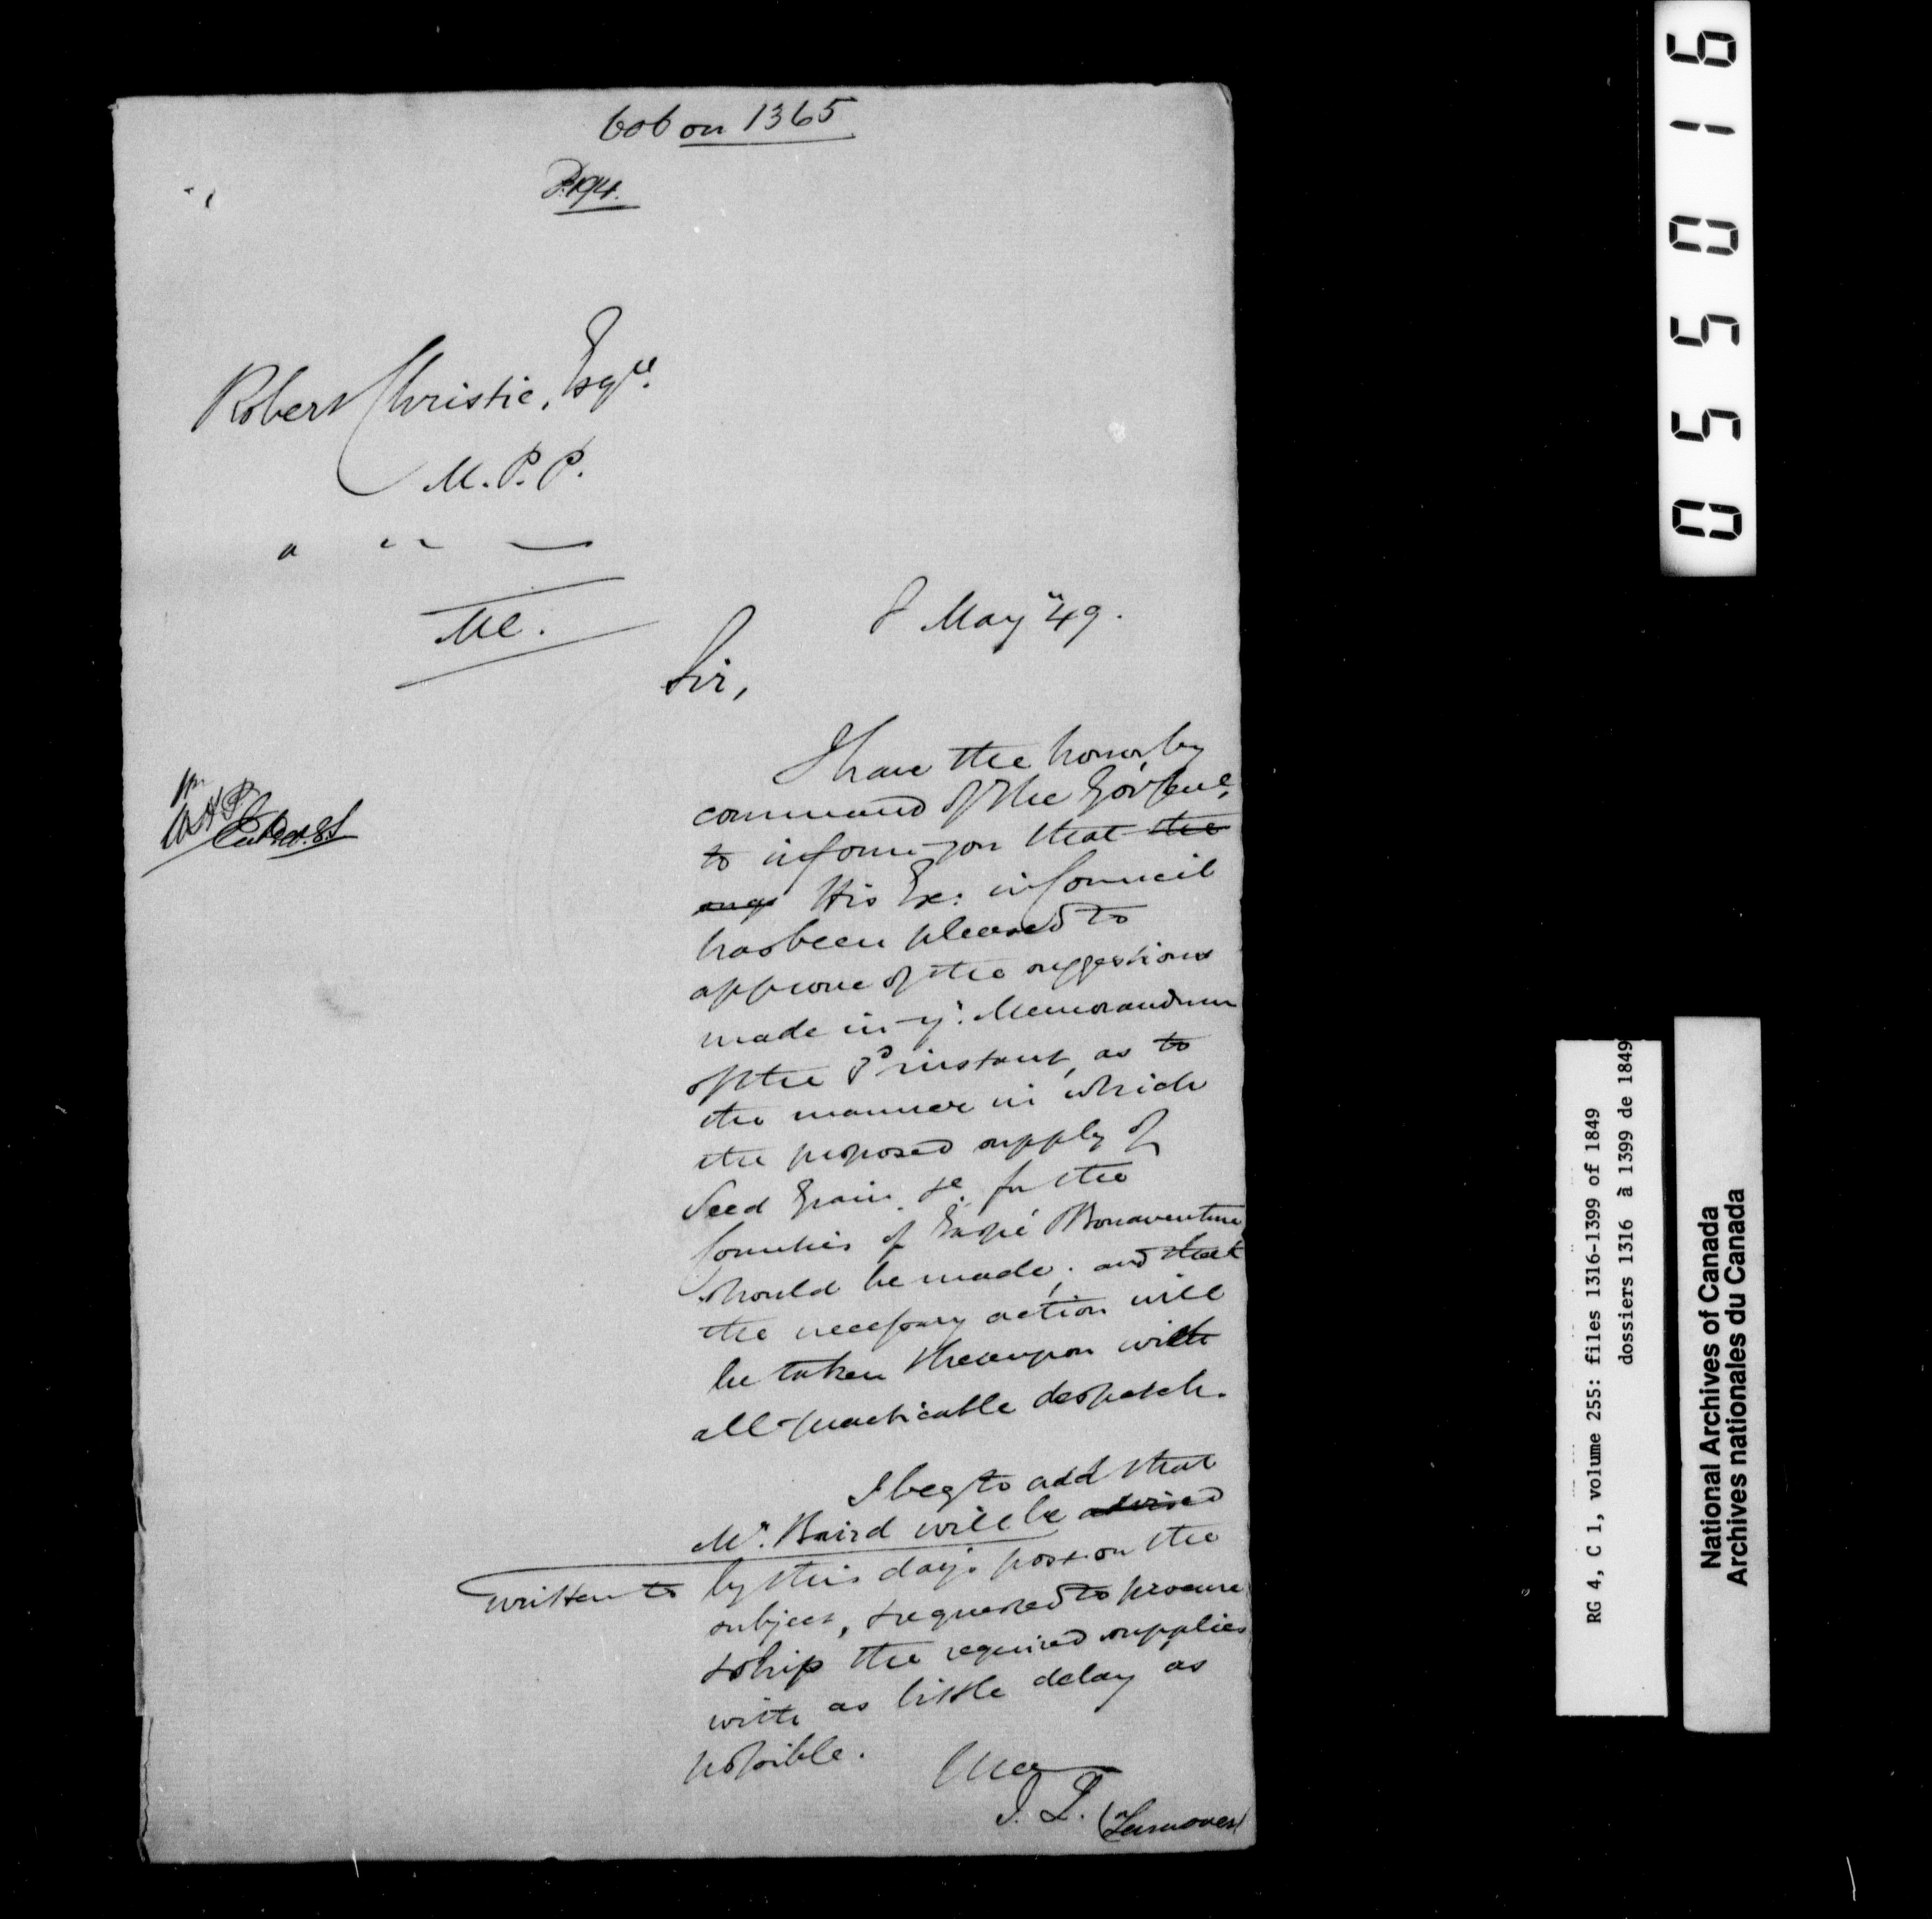 606 on 1365
P. 194.
Robert Christie, Esqre.
M.P.P.
" " —
Ml.
8 May "49.
Sir,
I have the honor, by
command of the Gov Genl,
to inform you that the
His Ex: in Council
has been pleased to
approve of the suggestions
made in yr. Memorandum
of the instant, as to
the manner in which
the proposed supply of
Seed Grain &c. for the
Counties of Gaspé & Bonaventure
should be made; and that
the necessary action will
be taken thereupon with
all practicable despatch.
I beg to add that
Mr. Baird will be advised
written to by this day's post on the
subject, & requested to procure
& ship the required supplies
with as little delay as
possible.
J. L. (Turn over)
055016
RG 4, C 1, volume 255: files 1316-1399 of 1849
dossiers 1316 à 1399 de 1849
National Archives of Canada
Archives nationales du Canada